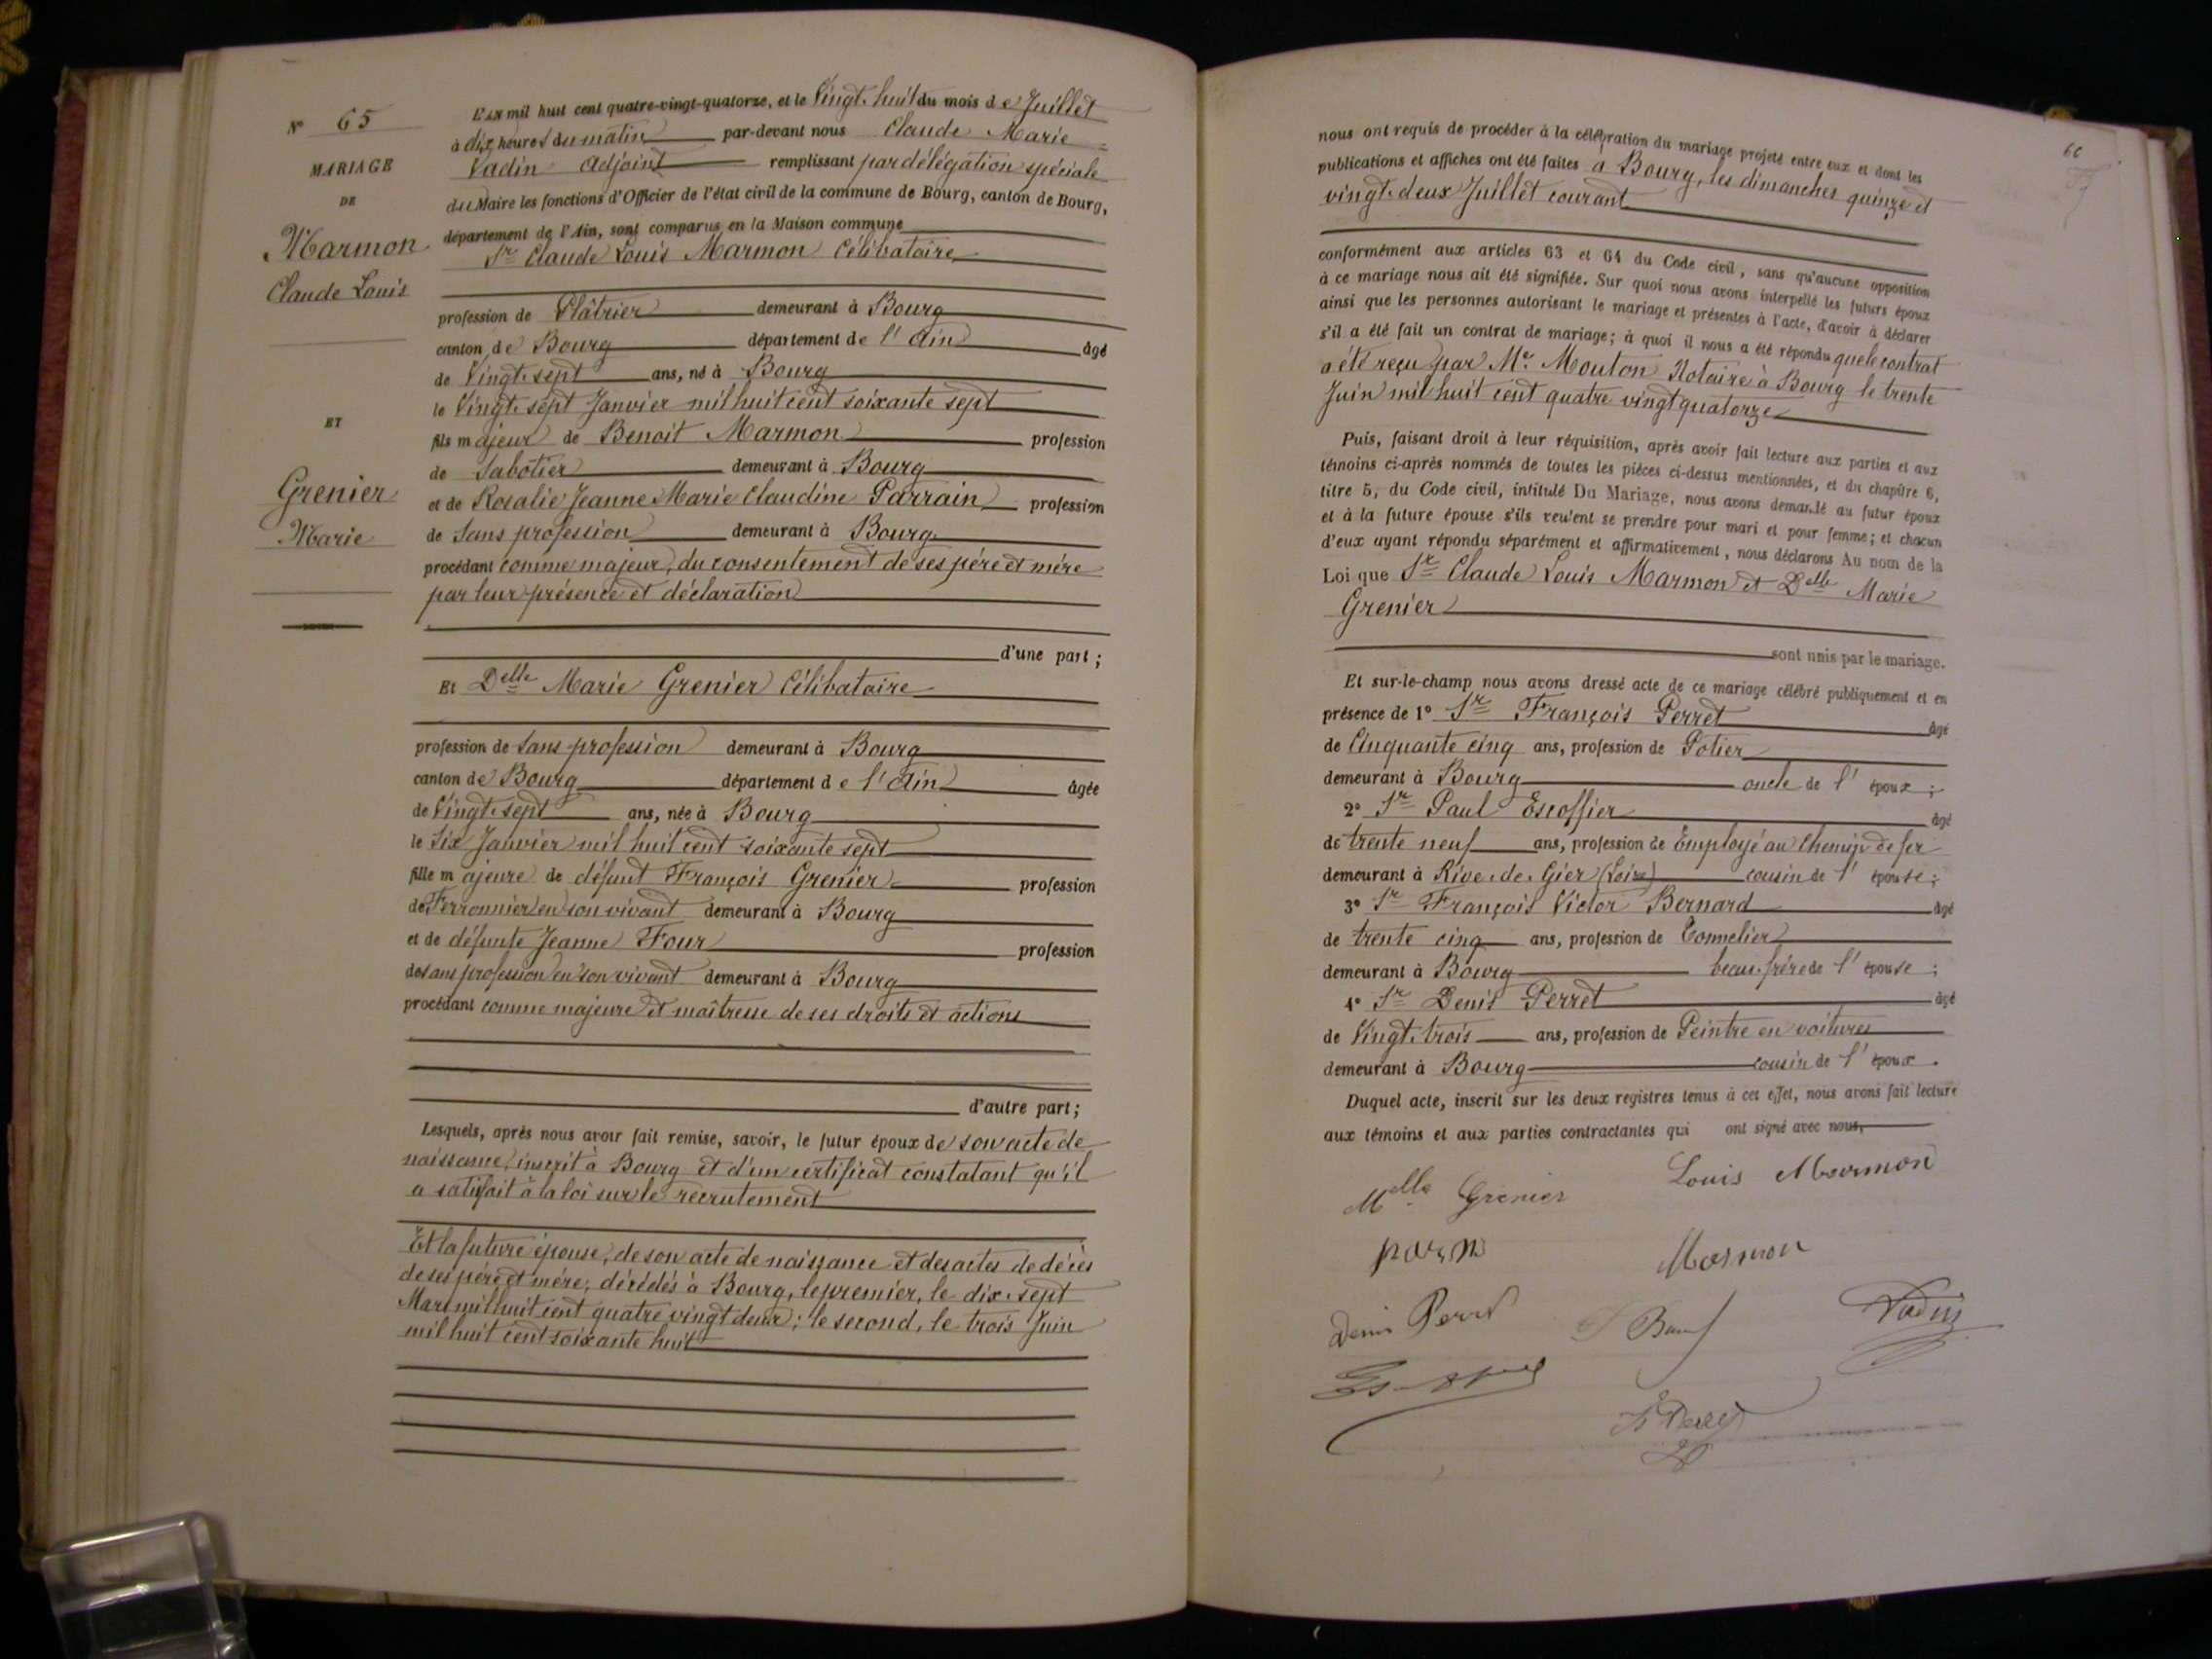 N° 65
MARIAGE
DE
Marmon
Claude Louis
ET
Grenier
Marie
L'an mil huit cent quatre-vingt-quatorze, et le Vingt-huit du mois de Juillet
à dix heures du matin par-devant nous Claude Marie
Vadin Adjoint remplissant par délégation spéciale
du Maire les fonctions d'Officier de l'état civil de la commune de Bourg, canton de Bourg,
département de l'Ain, sont comparus en la Maison commune
Sr Claude Louis Marmon Célibataire
profession de Plâtrier demeurant à Bourg
canton de Bourg département de l'Ain âgé
de Vingt-sept ans, né à Bourg
le Vingt-sept Janvier mil huit cent soixante sept
fils majeur de Benoit Marmon profession
de Sabotier demeurant à Bourg
et de Rosalie Jeanne Marie Claudine Parrain profession
de Sans profession demeurant à Bourg
procédant comme majeur, du consentement de ses père et mère
par leur présence et déclaration
d'une part ;
Et Delle Marie Grenier Célibataire
profession de Sans profession demeurant à Bourg
canton de Bourg département de l'Ain âgée
de Vingt-sept ans, née à Bourg
le Six Janvier mil huit cent soixante sept
fille majeure de défunt François Grenier profession
de Ferronnier en son vivant demeurant à Bourg
et de défunte Jeanne Four profession
de sans profession en son vivant demeurant à Bourg
procédant comme majeure et maîtresse de ses droits et actions
d'autre part ;
Lesquels, après nous avoir fait remise, savoir, le futur époux de son acte de
naissance, inscrit à Bourg et d'un certificat constatant qu'il
a satisfait à la loi sur le recrutement
Et la future épouse, de son acte de naissance et des actes de décès
de ses père et mère, décédés à Bourg, le premier, le dix-sept
Mars mil huit cent quatre vingt deux ; le second, le trois Juin
mil huit cent soixante huit
66
nous ont requis de procéder à la célébration du mariage projeté entre eux et dont les
publications et affiches ont été faites à Bourg, les dimanches quinze et
vingt-deux Juillet courant
conformément aux articles 63 et 64 du Code civil, sans qu'aucune opposition
à ce mariage nous ait été signifiée. Sur quoi nous avons interpellé les futurs époux
ainsi que les personnes autorisant le mariage et présentes à l'acte, d'avoir à déclarer
s'il a été fait un contrat de mariage ; à quoi il nous a été répondu que le contrat
a été reçu par Me Mouton Notaire à Bourg le trente
Juin mil huit cent quatre vingt quatorze
Puis, faisant droit à leur réquisition, après avoir fait lecture aux parties et aux
témoins ci-après nommés de toutes les pièces ci-dessus mentionnées, et du chapitre 6,
titre 5, du Code civil, intitulé Du Mariage, nous avons demandé au futur époux
et à la future épouse s'ils veulent se prendre pour mari et pour femme ; et chacun
d'eux ayant répondu séparément et affirmativement, nous déclarons Au nom de la
Loi que Sr Claude Louis Marmon et Delle Marie
Grenier
sont unis par le mariage.
Et sur-le-champ nous avons dressé acte de ce mariage célébré publiquement et en
présence de 1° Sr François Perret âgé
de Cinquante cinq ans, profession de Potier
demeurant à Bourg oncle de l'époux ;
2° Sr Paul Escoffier âgé
de trente neuf ans, profession de Employé au Chemin de fer
demeurant à Rive-de-Gier (Loire) cousin de l'épouse ;
3° Sr François Victor Bernard âgé
de trente cinq ans, profession de Tonnelier
demeurant à Bourg beau-frère de l'épouse ;
4° Sr Denis Perret âgé
de Vingt-trois ans, profession de Peintre en voitures
demeurant à Bourg cousin de l'époux.
Duquel acte, inscrit sur les deux registres tenus à cet effet, nous avons fait lecture
aux témoins et aux parties contractantes qui ont signé avec nous,
Melle Grenier Louis Marmon
Marmon
Denis Perret Vadin